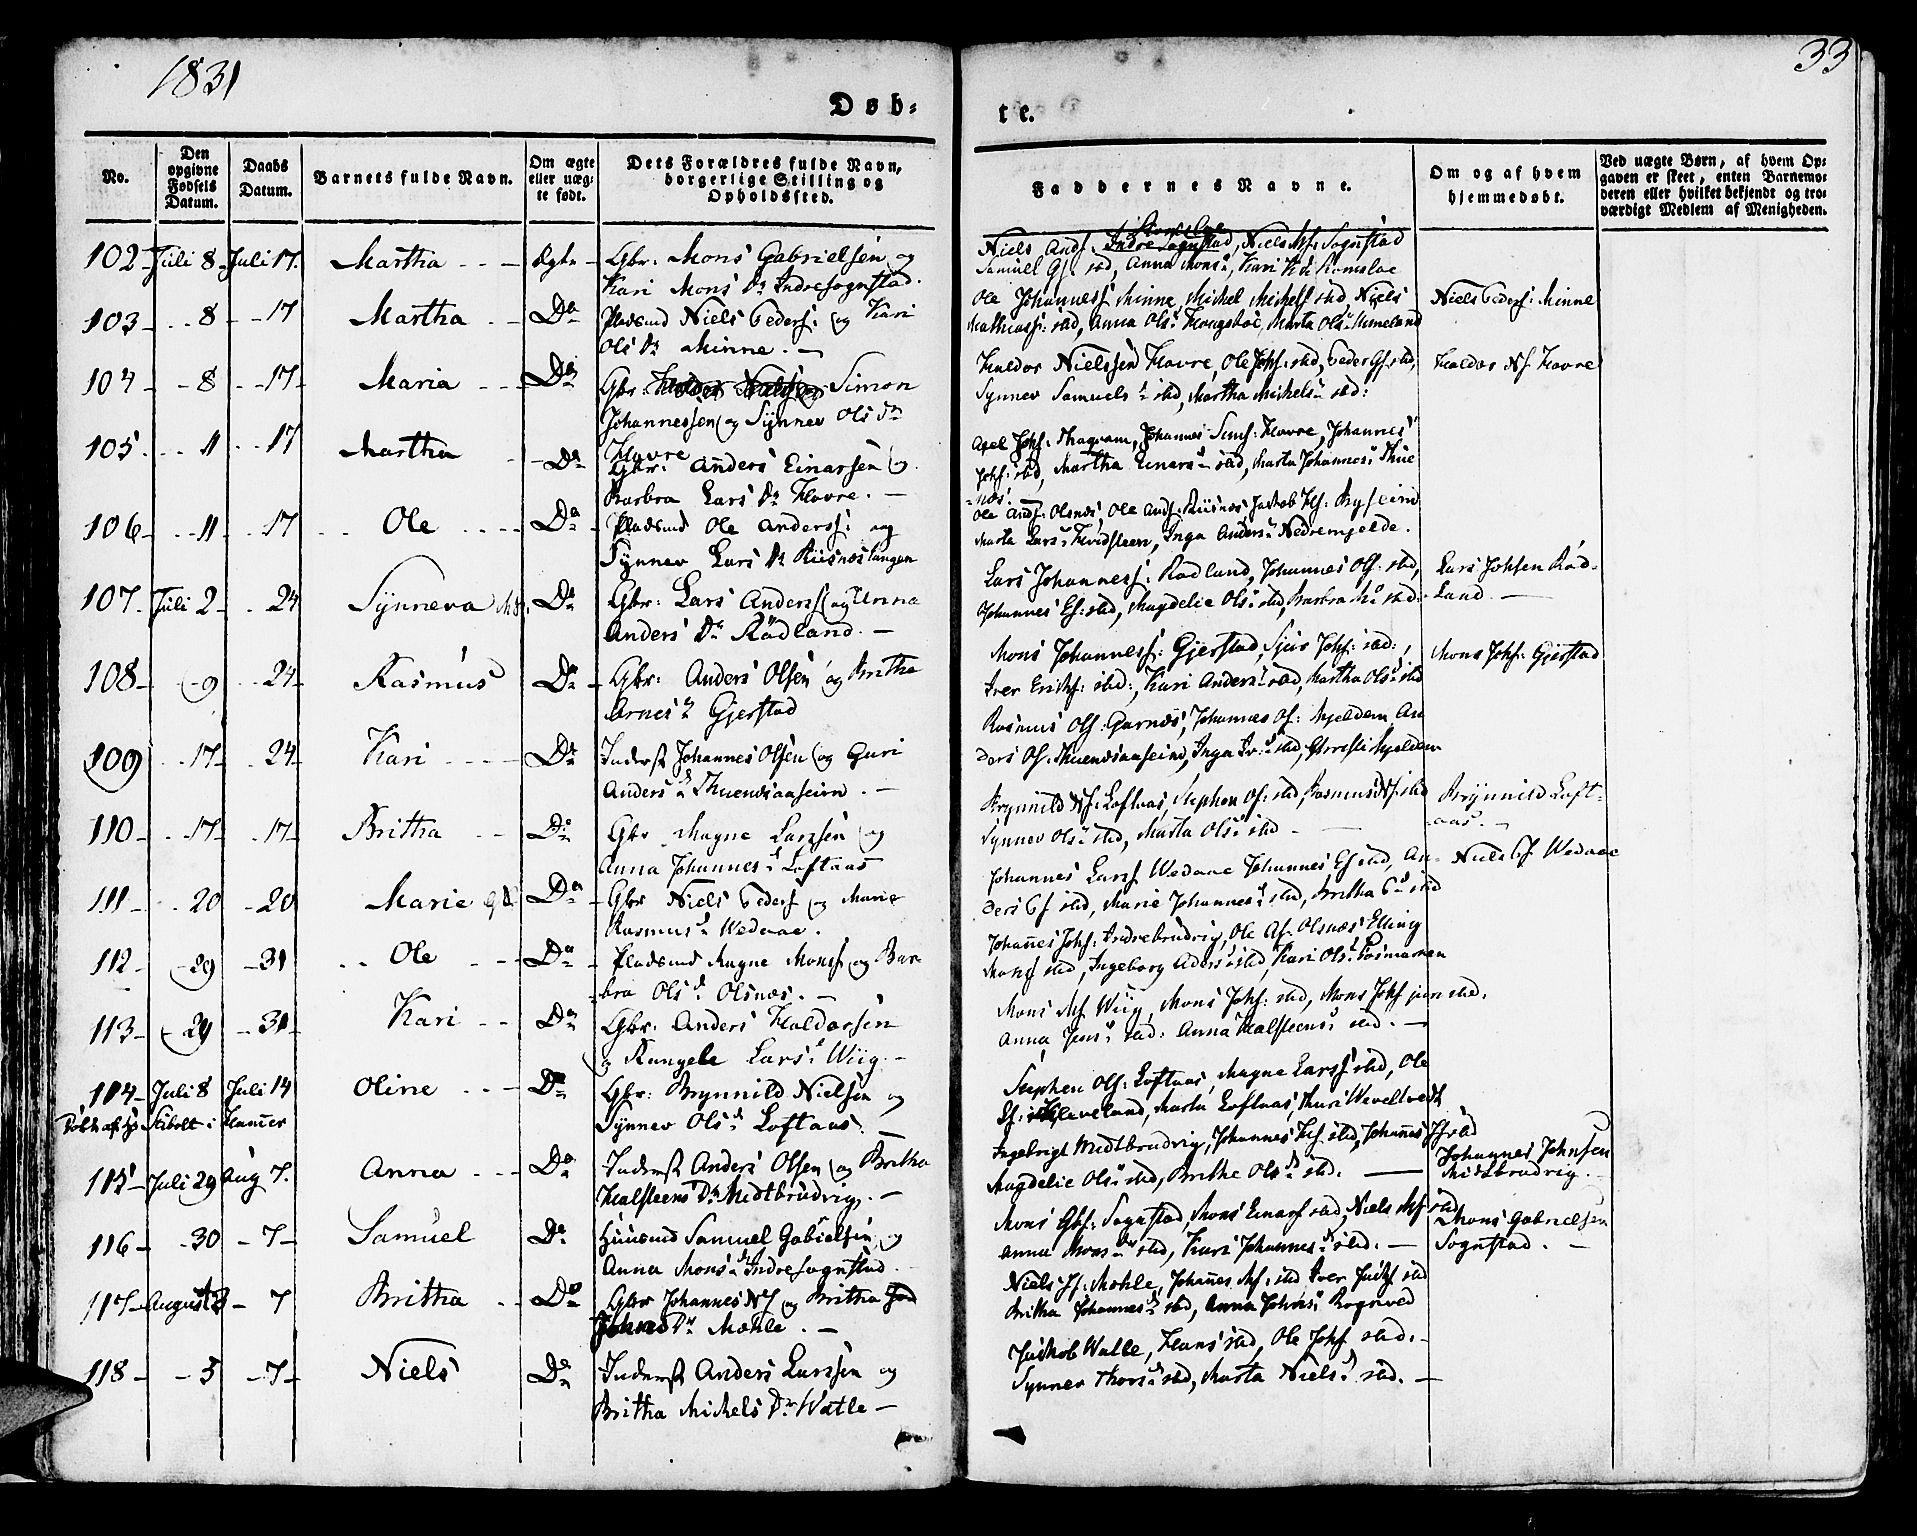 1831
33
Døb-
te.
No.
Den opgivne Fødsels Datum.
Daabs Datum.
Barnets fulde Navn.
Om ægte eller uægte født.
Dets Forældres fulde Navn, borgerlige Stilling og Opholdssted.
Faddernes Navne.
Om og af hvem hjemmedøbt.
Ved uægte Børn, af hvem Opgaven er skeet, enten Barnemoderen eller hvilket bekjendt og troværdigt Medlem af Menigheden.
102 Juli 8 Juli 17. Martha Ægte Gbr. Mons Gabrielsen og
Kari Mons Dr Indresognstad.
Niels Ands. Indre Sognstad, Niels Ms. Sognstad
103 8 17 Martha Do Pladsmd Niels Peders: og Kari
Ols Dr Minne.
Ole Johanness Minne, Michel Michels sted, Niels
Mathiass: sted, Anna Ols Hougstoe, Marta Ols
Niels Peders: Minne
104 8 17 Maria Do Gbr. Simon
Johannessen og Synnev Ols Dr
Havre
Haldor Nielssen Havre, Ole Johs: sted, Peder Gs. sted,
Synnev Samuels sted, Martha Michels sted:
Haldor Ns Havre
105 11 17 Martha Do Gbr: Anders Einarsen og
Barbra Lars Dr Havre.
Johs: sted, Martha Einars sted, Marta Johannes Thue
næs.
106 11 17 Ole Do Pladsmd Ole Anderss: og
Synnev Lars Dr Riisnæstangen
Ole Ands: Olsnæs, Ole Ands: Riisnæs
Marta Lars Hvidsteen, Inga Anders Nedremjelde.
107 Juli 2 24 Synneva Do Gbr: Lars Anderss og Anna
Anders Dr Rødland.
Lars Johanness: Rødland, Johannes Ols: sted,
Johannes Es: sted, Magdelie Ols sted, Barbra Ms sted
Lars Johsen Rødland.
108 9 24 Rasmus Do Gbr: Anders Olsen og Britha
Arnes Gjerstad
Mons Johanness: Gjerstad, Sjur Johs: sted:,
Iver Eriks: sted:, Kari Anders sted, Martha Ols sted
Mons Johs: Gjerstad
109 17 24 Kari Do Inderst Johannes Olsen og Guri
Anders Thuenæsaaseim.
Rasmus Ols: Garnæs, Johannes Os: Mjeldem, An
ders Os: Thuenæsaaseim, Inga
110 17 17 Britha Do Gbr Magne Larssen og
Anna Johannes Loftaas
Brynnild Ns: Loftaas, Stephen Os: sted, Rasmus Ns. sted
Synnev Ols sted, Marta Ols sted
Brynnild Loftaas.
111 20 20 Marie Do Gbr Niels Peders og Marie
Rasmus Wedaae.
Johannes Larss Wedaae Johannes Es sted, An-
ders sted, Marie Johannes sted, Britha sted
Niels Wedaae
112 29 31 Ole Do Pladsmd Magne Monss og Bar
bra Ols Olsnæs.
Johannes Johs: Indrebrudvig, Ole As. Olsnæs Elling
Monss sted, Ingeborg
113 29 31 Kari Do Gbr: Anders Haldorsen
og Rangele Lars Wiig.
Mons Ms Wiig, Mons Johs: sted, Mons Johs jun sted.
Anna Jens sted: Anna Halsteens sted.
114 Juli 8 Juli 14 Oline Do Gbr: Brynnild Nielsen og
Synnev Ols Loftaas.
Stibolt i Hammer
Stephen Ols: Loftaas, Magne Larss sted, Ole
Marta Loftaas, Thuri Weveltvedt
115 Juli 29 Aug 7. Anna Do Inderst Anders Olsen og Britha
Halsteens Dr Midtbrudvig.
Ingebrigt Midtbrudvig, Johannes sted, Johannes
Magdelie Ols sted, Brithe Ols sted.
Johannes Johnsen
Midtbrudvig.
116 30 7 Samuel Do Huusmd Samuel Gabrielsen og
Anna Mons Indresognstad.
Mons Gbs: Sognstad, Mons Einars sted, Niels Ms sted
Anna Mons sted, Kari Johannes sted.
Mons Gabrielsen
Sognstad.
117 August 7 Britha Do Gbr Johannes Ns og Britha
Johns Dr Mæhle.
Britha Johannes sted, Anna Johns
118 5 7 Niels Do Inderst Anders Larssen og
Britha Michels Dr Watle
Jackob Watle, Hans sted, Ole Johs sted.
Synnev Thors sted, Marta Niels sted.